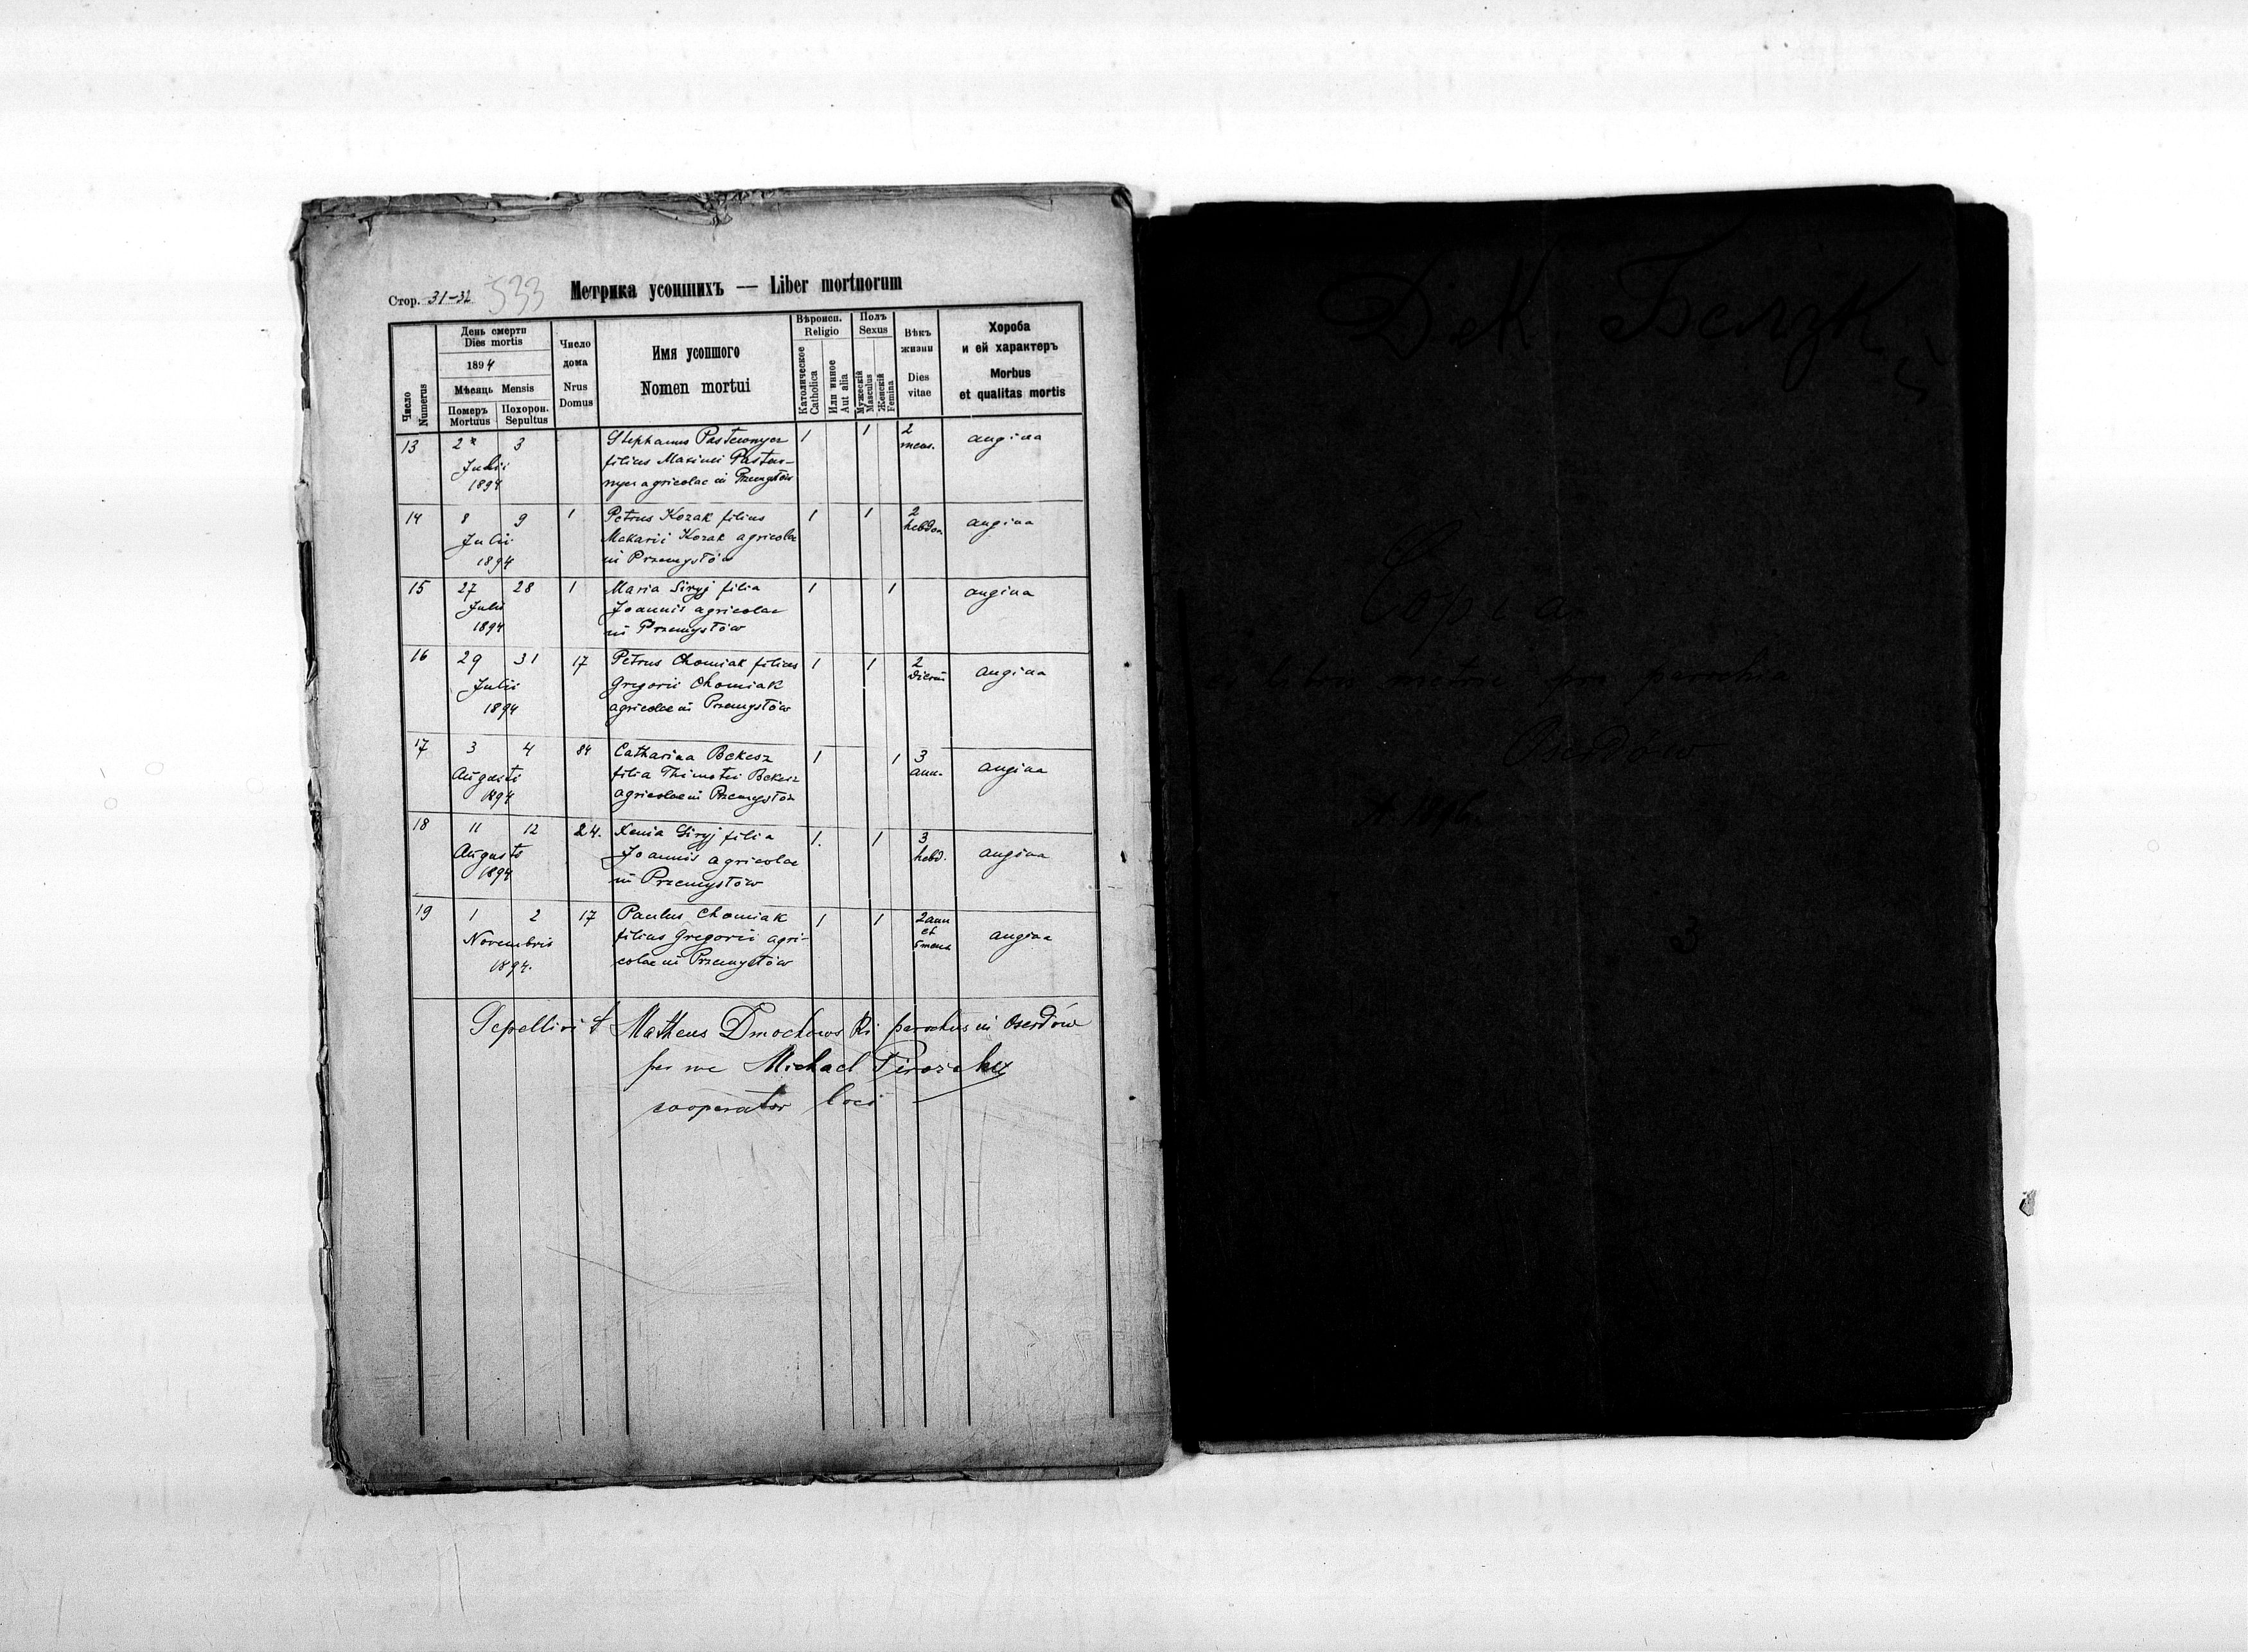 Стор. 31-32 533 Метрика усопшихъ — Liber mortuorum
Число Numerus
День смерти
Dies mortis
1894
Мѣсяць Mensis
Померъ Mortuus
Похорон. Sepultus
Число дома
Nrus Domus
Имя усопшого
Nomen mortui
Вѣроисп.
Religio
Католическое Catholica
Или инное Aut alia
Полъ
Sexus
Мужескій Masculus
Женскій Femina
Вѣкъ жизни
Dies vitae
Хороба
и ей характеръ
Morbus
et qualitas mortis
13 2 3 Stephanus 1 1 2 angina
Julii filius Maximi mens.
1894 agricolae in Przemysłów
14 8 9 1 Petrus Kozak filius 1 1 2 angina
Julii Makarii Kozak agricolae hebdom.
1894 in Przemysłów
15 27 28 1 Maria Siryj filia 1 1 angina
Julii Joannis agricolae
1894 in Przemysłów
16 29 31 17 Petrus Chomiak filius 1 1 2 angina
Julii Gregorii Chomiak dierum
1894 agricolae in Przemysłów
17 3 4 84 Catharina Bekesz 1 1 3 angina
Augusti filia Thimotei Bekesz ann.
1894 agricolae in Przemysłów
18 11 12 24. Xenia Siryj filia 1. 1 3 angina
Augusti Joannis agricolae hebd.
1894 in Przemysłów
19 1 2 17 Paulus Chomiak 1 1 2 ann
Novembris filius Gregorii agri- et angina
1894. colae in Przemysłów 5 mens
Sepellivit Matheus Dmochowski parochus in Oserdów
per me Michael
cooperator loci
Дек. Белзкій
Copia
libri metric pro parochia
Oserdów
3